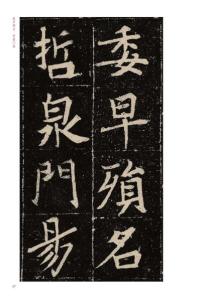 委早殞名
哲泉門易